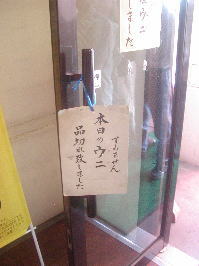 ウニ
しました
すみません
本日のウニ
品切れ致しました